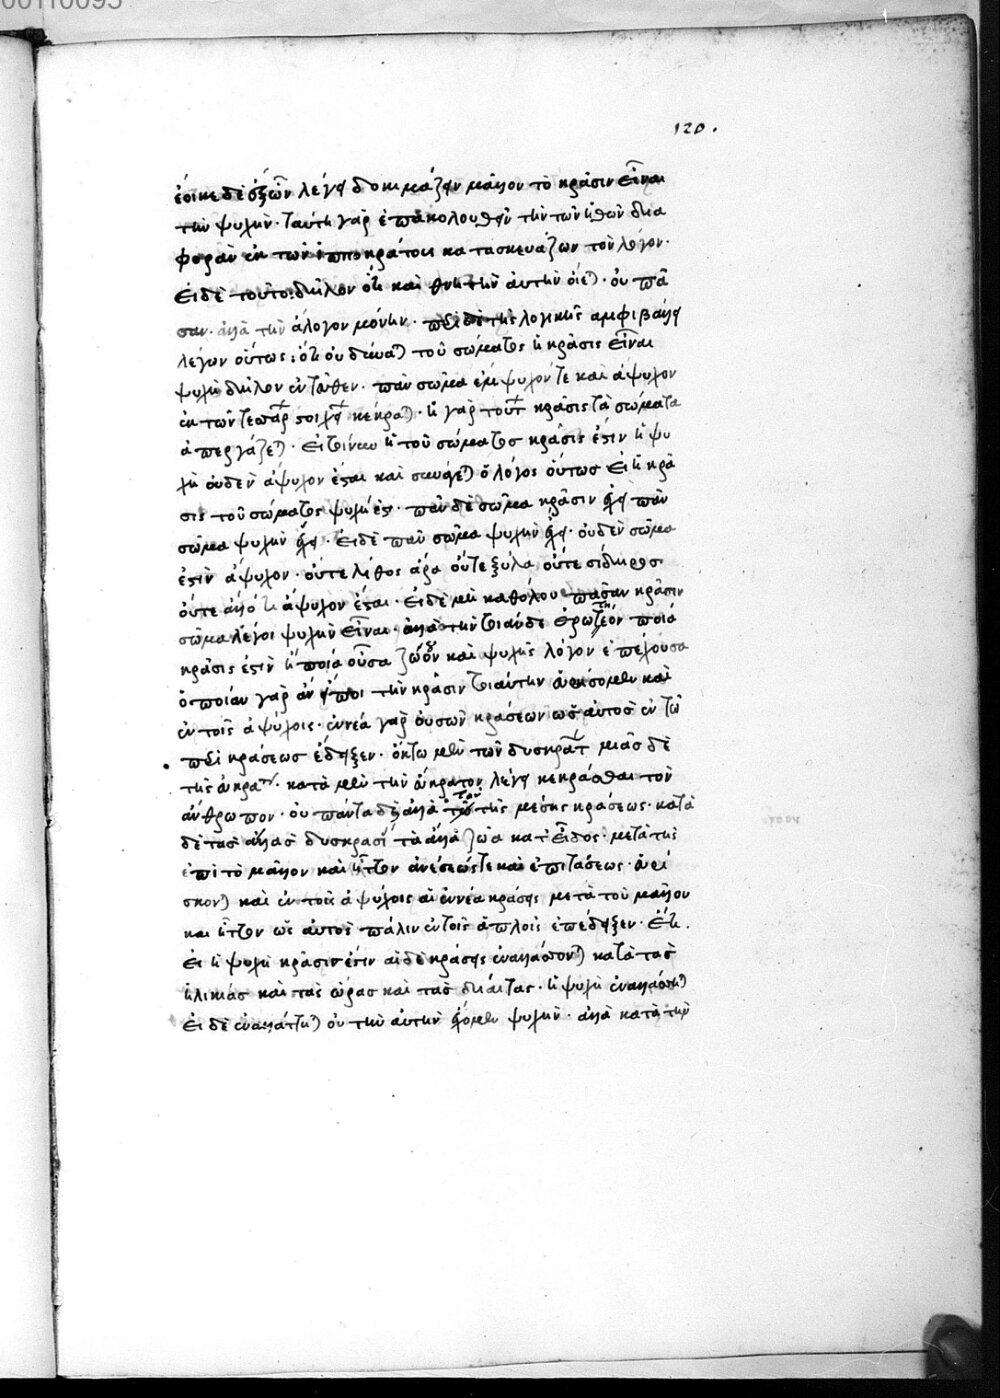 00110095
120.
ἔοικε δὲ ἐξ ὧν λέγει δοκιμάζειν μᾶλλον τὸ κρᾶσιν εἶναι
τὴν ψυχήν· ταύτη γὰρ ἐπακολουθεῖν τὴν τῶν ἠθῶν δια
φορὰν ἐκ τῶν ἱπποκράτους κατασκευάζων τὸν λόγον·
εἰ δὲ τοῦτο· δῆλον ὅτι καὶ θνητὴν αὐτὴν οἴεται· οὐ πᾶ
σαν· ἀλλὰ τὴν ἄλογον μόνην· περὶ δὲ τῆς λογικῆς ἀμφιβάλλει
λέγων οὕτως· ὅτι οὐ δύναται τοῦ σώματος ἡ κρᾶσις εἶναι
ψυχὴ δῆλον ἐντεῦθεν· πᾶν σῶμα ἔμψυχόν τε καὶ ἄψυχον
ἐκ τῶν τεσσάρων στοιχείων κέκραται· ἡ γὰρ τούτων κρᾶσις τὰ σώματα
ἀπεργάζεται· εἰ τοίνυν ἡ τοῦ σώματος κρᾶσις ἐστὶν ἡ ψυ
χὴ οὐδὲν ἄψυχον ἔσται καὶ συνάγεται ὁ λόγος οὕτως εἰ ἡ κρᾶ
σις τοῦ σώματος ψυχή ἐστι· πᾶν δὲ σῶμα κρᾶσιν ἔχει πᾶν
σῶμα ψυχὴν ἔχει· εἰ δὲ πᾶν σῶμα ψυχὴν ἔχει· οὐδὲν σῶμα
ἐστὶν ἄψυχον· οὔτε λίθος ἄρα οὔτε ξύλα οὔτε σίδηρος
οὔτε ἄλλό τι ἄψυχον ἔσται· εἰ δὲ μὴ καθόλου πᾶσαν κρᾶσιν
σώματος λέγοι ψυχὴν εἶναι· ἀλλὰ τὴν τοιάνδε ἐρωτητέον ποία
κρᾶσις ἐστὶν ἡ ποιοῦσα ζῷον καὶ ψυχῆς λόγον ἐπέχουσα
ὁποίαν γὰρ ἂν εἴποι τὴν κρᾶσιν τοιαύτην εὑρήσομεν καὶ
ἐν τοῖς ἀψύχοις· ἐννέα γὰρ οὐσῶν κράσεων ὡς αὐτὸς ἐν τῷ
περὶ κράσεως ἔδειξεν· ὀκτὼ μὲν τῶν δυσκράτων μιᾶς δὲ
τῆς εὐκράτου· κατὰ μὲν τὴν εὔκρατον λέγει κεκρᾶσθαι τὸν
ἄνθρωπον· οὐ πάντα δὲ ἀλλὰ τὸν τῆς μέσης κράσεως· κατὰ
δὲ τὰς ἄλλας δυσκρασίας τὰ ἄλλα ζῷα κατ' εἶδος· μετὰ τῆς
ἐπὶ τὸ μᾶλλον καὶ ἧττον ἀνέσεώς τε καὶ ἐπιτάσεως· εὑρί
σκονται καὶ ἐν τοῖς ἀψύχοις αἱ ἐννέα κράσεις μετὰ τοῦ μᾶλλον
καὶ ἧττον ὡς αὐτὸς πάλιν ἐν τοῖς ἁπλοῖς ἐπέδειξεν· ἔτι.
εἰ ἡ ψυχὴ κρᾶσις ἐστὶν αἱ δὲ κράσεις ἐναλλάττονται κατὰ τὰς
ἡλικίας καὶ τὰς ὥρας καὶ τὰς διαίτας· ἡ ψυχὴ ἐναλλάττεται
εἰ δὲ ἐναλλάττεται οὐ τὴν αὐτὴν ἔχομεν ψυχὴν· ἀλλὰ κατὰ τὴν